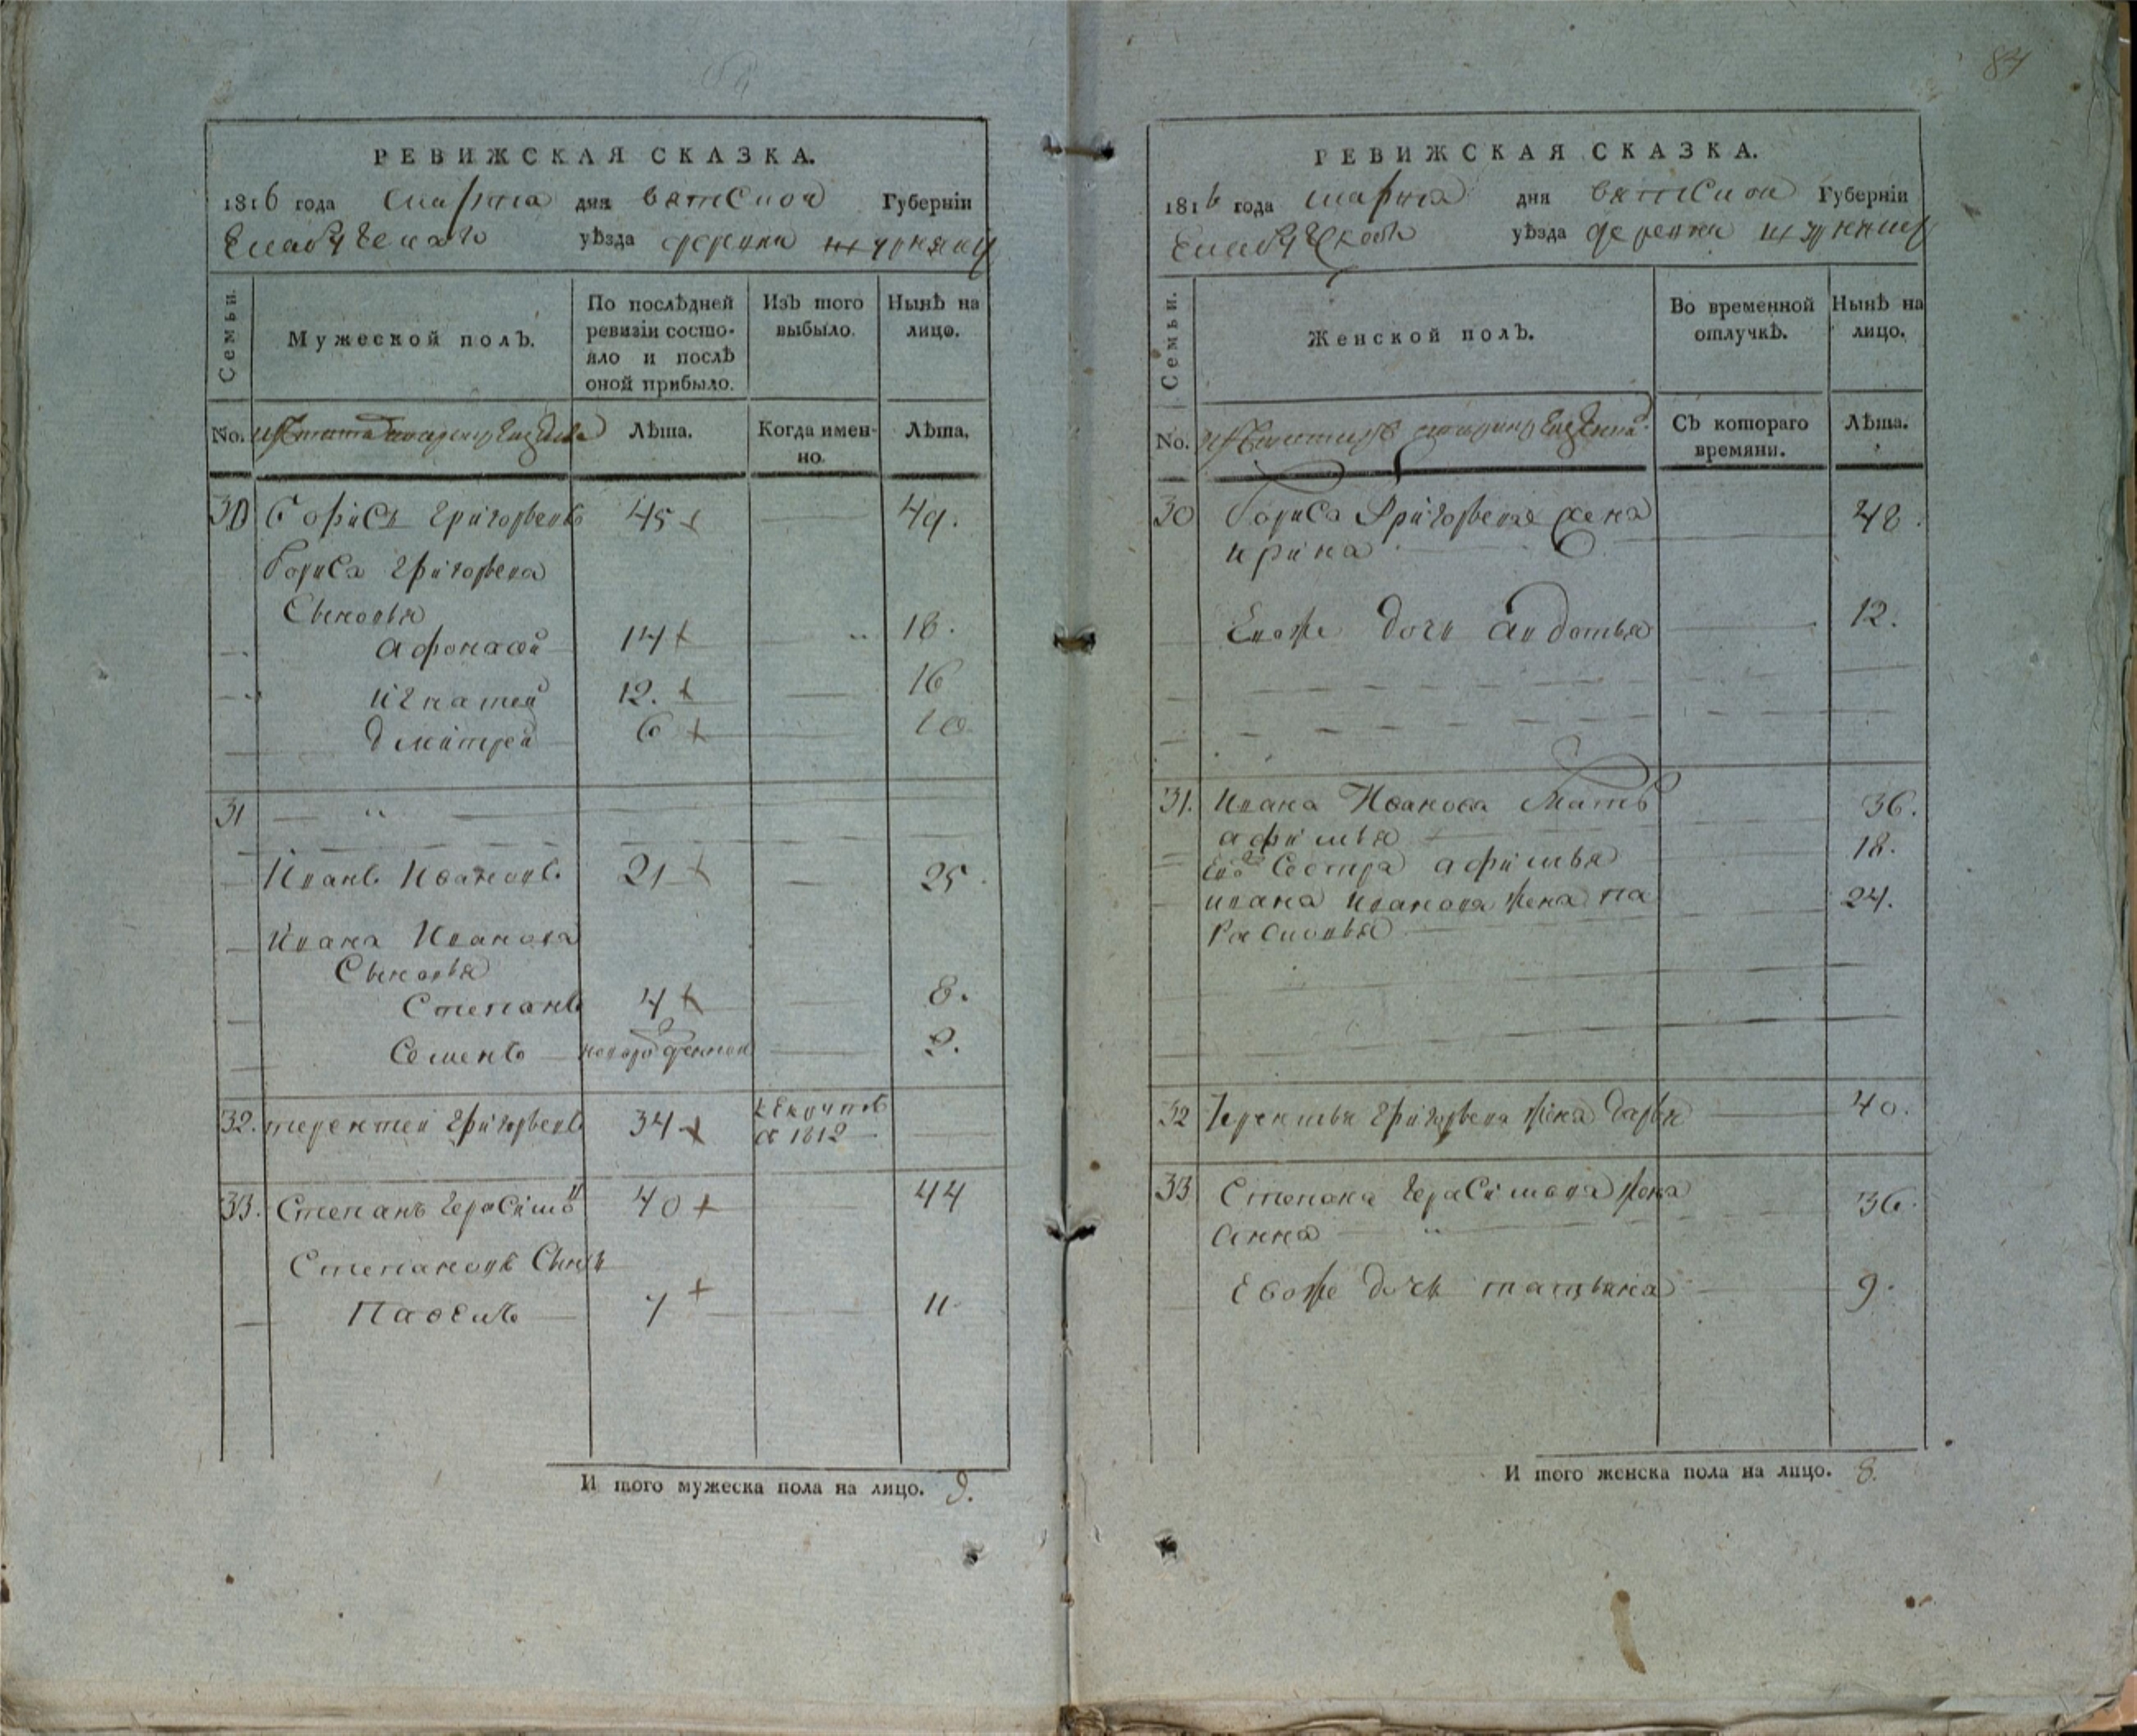 РЕВИЖСКАЯ СКАЗКА.
1816 года марта дня вятской Губерніи
Елабужскаго уѣзда деревни
Семьи.
Мужеской полъ.
По послѣдней
ревизіи состо-
яло и послѣ
оной прибыло.
Изъ того
выбыло.
Нынѣ на
лицо.
No.
Лѣта.
Когда имен-
но.
Лѣта.
30 Борисъ Григорьевъ 45 49.
Бориса Григорьева
Сыновья
Афонасей 14 18.
Игнатей 12. 16
Дмитрей 6 10
31
Иванъ Ивановъ 21 25.
Ивана Иванова
Сыновья
Степанъ 4 8.
Семенъ новорожденной 2.
32. терентей Григорьевъ 34
в 1812
33. Степанъ Герасимовъ 40 44
Степановъ Сынъ
Павелъ 7 11
И того мужеска пола на лицо. 9.
84
РЕВИЖСКАЯ СКАЗКА.
1816 года марта дня вятской Губерніи
Елабужской уѣзда деревни
Семьи.
Женской полъ.
Во временной
отлучкѣ.
Нынѣ на
лицо.
No.
Съ котораго
времяни.
Лѣта.
30 Бориса Григорьева жена 48.
ирина
Евоже дочь авдотья 12.
31. Ивана Иванова Мать 36.
афимья
Ево Сестра афимья 18.
ивана иванова жена па 24.
расковья
32 Терентья Григорьева жена дарья 40.
33 Степана Герасимова жена 36.
анна
Евоже дочь татьяна 9.
И того женска пола на лицо. 8.